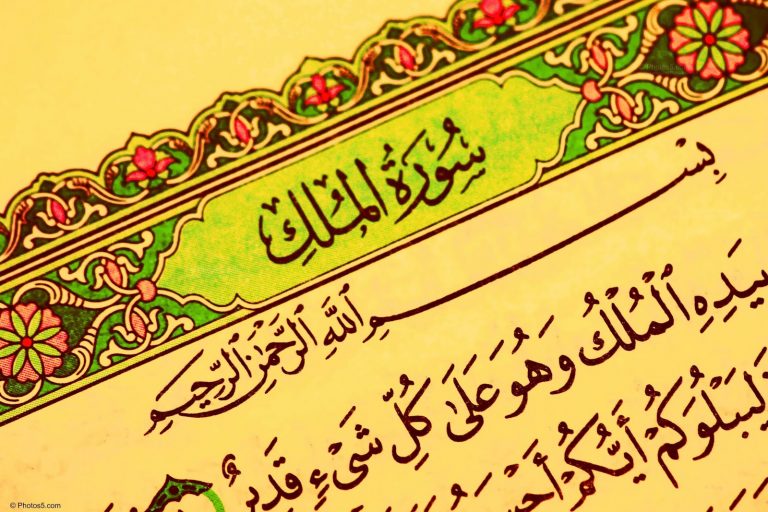 سُورَةُ المُلْكِ
بِسْمِ اللَّهِ الرَّحْمَٰنِ الرَّحِيمِ
بِيَدِهِ ٱلْمُلْكُ وَهُوَ عَلَىٰ كُلِّ شَىْءٍ قَدِيرٌ
لِيَبْلُوَكُمْ أَيُّكُمْ
© Photos5.com